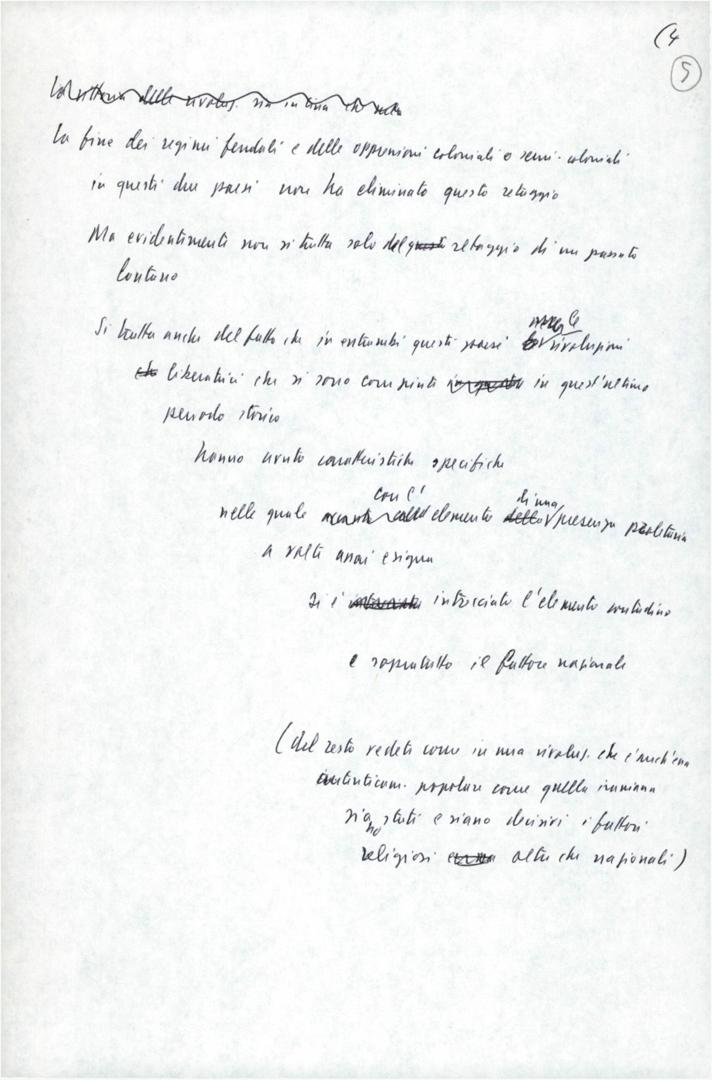 (4
5
La vittoria delle rivoluz. sia in Cina che
La fine dei regimi feudali e delle oppressioni coloniali o semi-coloniali
in questi due paesi non ha eliminato questo retaggio
Ma evidentemente non si tratta solo del retaggio di un passato
lontano
Si tratta anche del fatto che in entrambi questi paesi le rivoluzioni
liberatrici che si sono compiute in quest'ultimo
periodo storico
hanno avuto caratteristiche specifiche
con l'
di una
nelle quale elemento della presenza proletaria
a volte assai esigua
si è intrecciato l'elemento contadino
e sopratutto il fattore nazionale
(del resto vedete come in una rivoluz. che è anch'essa
autenticam. popolare come quella iraniana
siano stati e siano decisivi i fattori
religiosi oltre che nazionali)